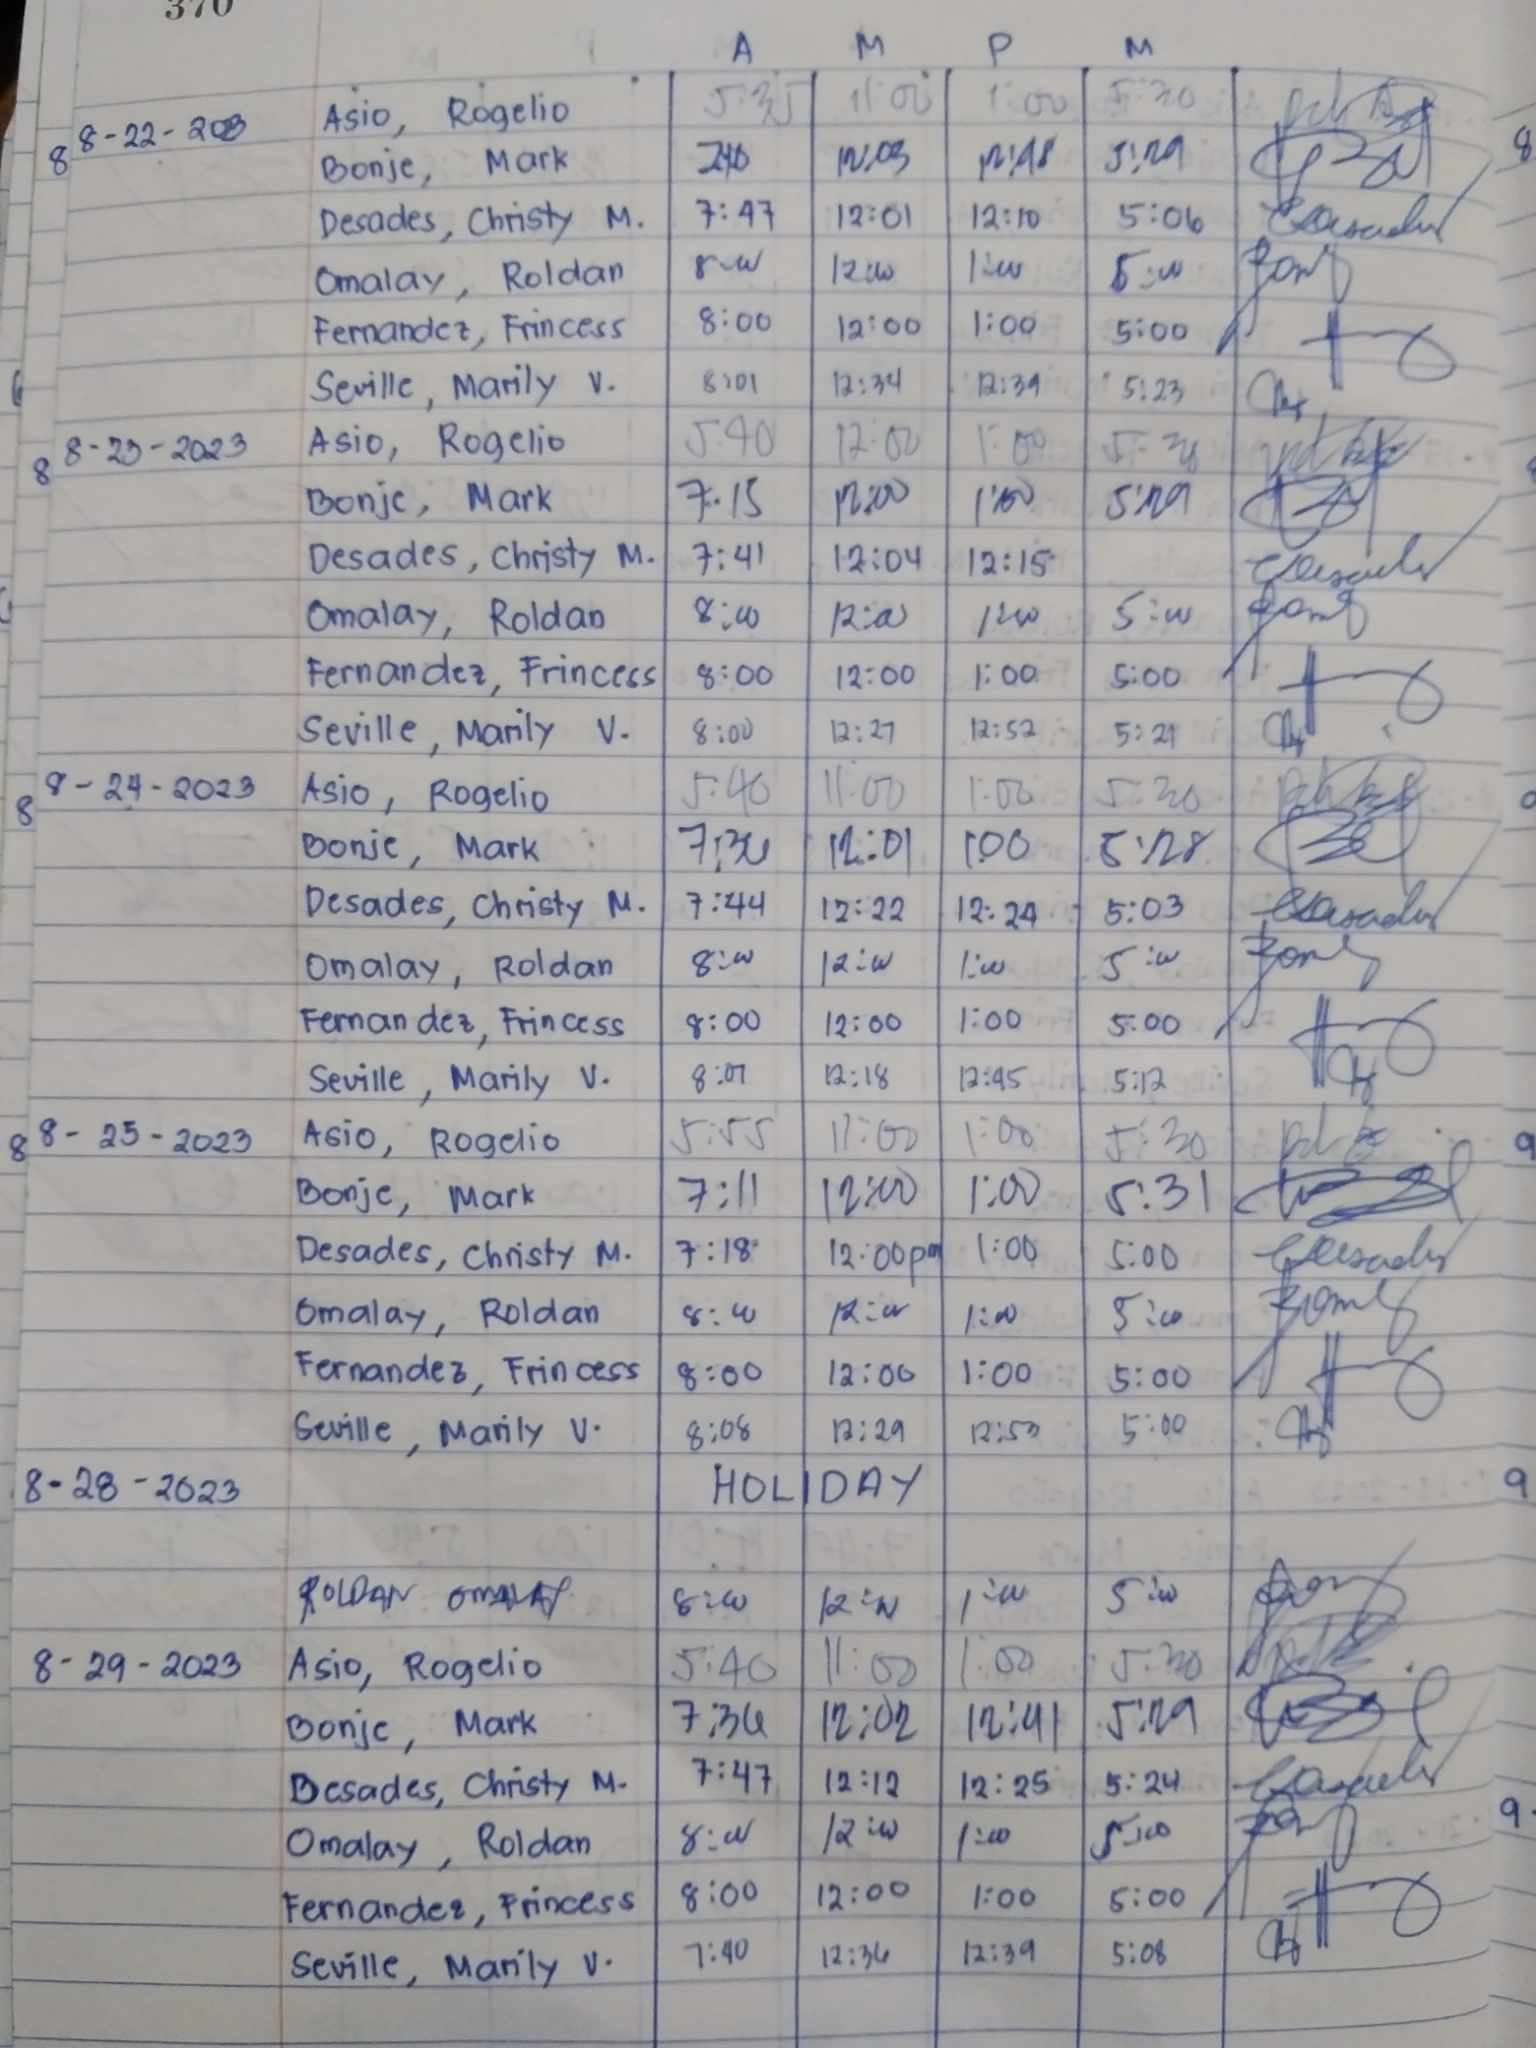 370
A M P M
8-22-2023 Asio, Rogelio 5:35 11:00 1:00 5:30
Bonje, Mark 12:03 12:48 5:29
Desades, Christy M. 7:47 12:01 12:10 5:06
Omalay, Roldan 8:00 12:00 1:00 5:00
Fernandez, Frincess 8:00 12:00 1:00 5:00
Seville, Marily V. 8:01 12:34 12:39 5:23
8-23-2023 Asio, Rogelio 5:40 12:00 1:00 5:30
Bonje, Mark 7:15 12:00 1:00 5:29
Desades, Christy M. 7:41 12:04 12:15
Omalay, Roldan 8:00 12:00 1:00 5:00
Fernandez, Frincess 8:00 12:00 1:00 5:00
Seville, Marily V. 8:00 12:27 12:52 5:21
8-24-2023 Asio, Rogelio 5:40 11:00 1:00 5:30
Bonje, Mark 12:01 1:00 5:28
Desades, Christy M. 7:44 12:22 12:24 5:03
Omalay, Roldan 8:00 12:00 1:00 5:00
Fernandez, Frincess 8:00 12:00 1:00 5:00
Seville, Marily V. 8:07 12:18 12:45 5:12
8-25-2023 Asio, Rogelio 5:55 11:00 1:00 5:30
Bonje, Mark 7:11 12:00 1:00 5:31
Desades, Christy M. 7:18 12:00pm 1:00 5:00
Omalay, Roldan 8:00 12:00 1:00 5:00
Fernandez, Frincess 8:00 12:00 1:00 5:00
Seville, Marily V. 8:08 12:29 12:53 5:00
8-28-2023 HOLIDAY
ROLDAN OMALAY 8:00 12:00 1:00 5:00
8-29-2023 Asio, Rogelio 5:40 11:00 1:00 5:30
Bonje, Mark 7:36 12:02 12:41 5:29
Desades, Christy M. 7:47 12:12 12:25 5:24
Omalay, Roldan 8:00 12:00 1:00 5:00
Fernandez, Frincess 8:00 12:00 1:00 5:00
Seville, Marily V. 7:40 12:36 12:39 5:08